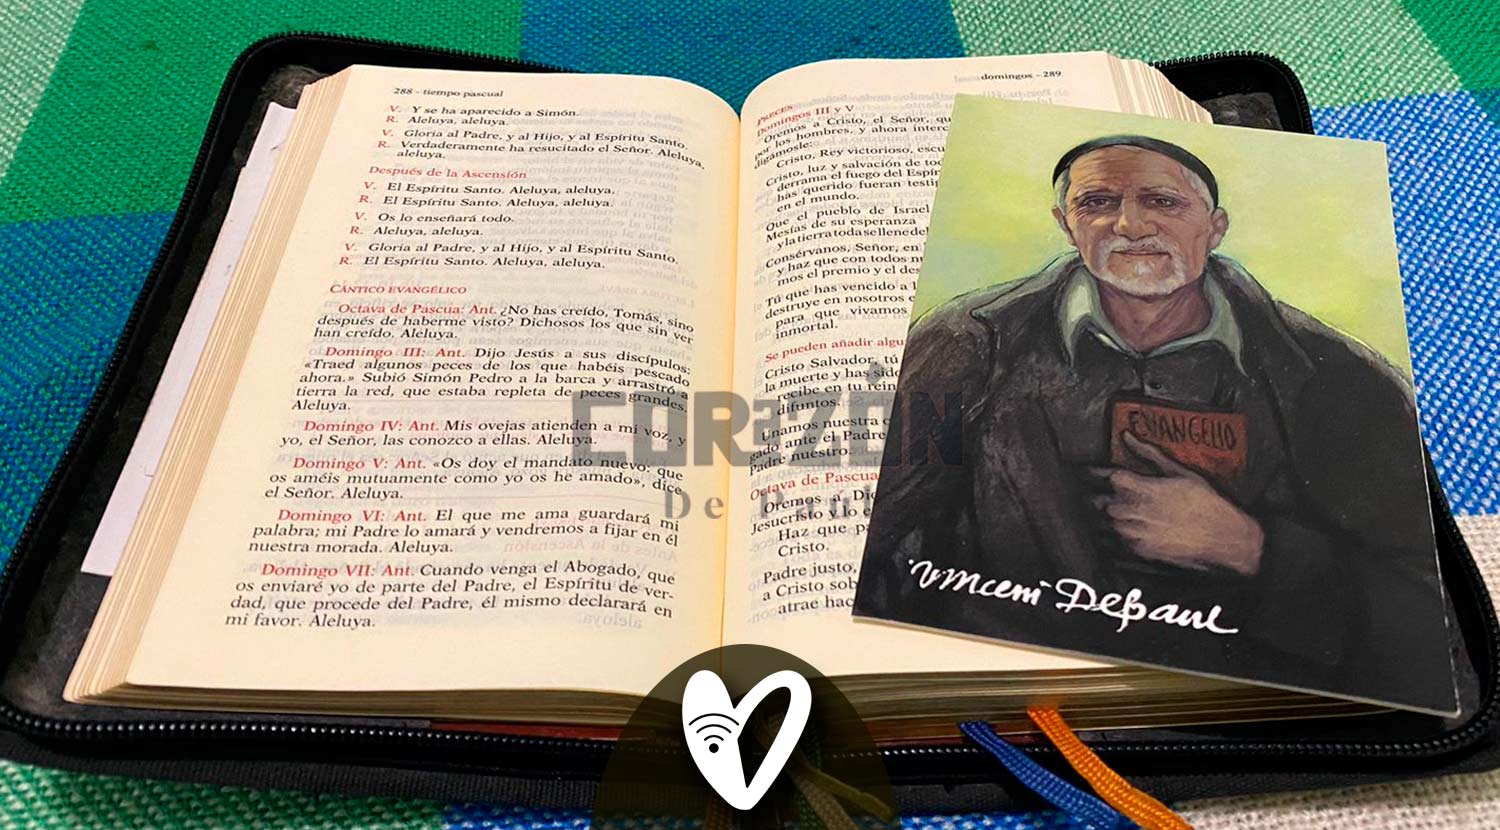 288 - tiempo pascual
V. Y se ha aparecido a Simón.
R. Aleluya, aleluya.
V. Gloria al Padre, y al Hijo, y al Espíritu Santo.
R. Verdaderamente ha resucitado el Señor. Aleluya,
aleluya.
Después de la Ascensión
V. El Espíritu Santo. Aleluya, aleluya.
R. El Espíritu Santo. Aleluya, aleluya.
V. Os lo enseñará todo.
R. Aleluya, aleluya.
V. Gloria al Padre, y al Hijo, y al Espíritu Santo.
R. El Espíritu Santo. Aleluya, aleluya.
CÁNTICO EVANGÉLICO
Octava de Pascua: Ant. ¿No has creído, Tomás, sino
después de haberme visto? Dichosos los que sin ver
han creído. Aleluya.
Domingo III: Ant. Dijo Jesús a sus discípulos:
«Traed algunos peces de los que habéis pescado
ahora.» Subió Simón Pedro a la barca y arrastró a
tierra la red, que estaba repleta de peces grandes.
Aleluya.
Domingo IV: Ant. Mis ovejas atienden a mi voz, y
yo, el Señor, las conozco a ellas. Aleluya.
Domingo V: Ant. «Os doy el mandato nuevo: que
os améis mutuamente como yo os he amado», dice
el Señor. Aleluya.
Domingo VI: Ant. El que me ama guardará mi
palabra; mi Padre lo amará y vendremos a fijar en él
nuestra morada. Aleluya.
Domingo VII: Ant. Cuando venga el Abogado, que
os enviaré yo de parte del Padre, el Espíritu de ver-
dad, que procede del Padre, él mismo declarará en
mi favor. Aleluya.
domingos - 289
PRECES
Domingos III y V
Oremos a Cristo, el Señor,
por los hombres, y ahora
digámosle:
Cristo, Rey victorioso,
Cristo, luz y salvación de
derrama el fuego del
has querido fueran
en el mundo.
Que el pueblo de Israel
Mesías de su esperanza
y la tierra toda se llene
Consérvanos, Señor, en
y haz que con todos
mos el premio y el
Tú que has vencido a
destruye en nosotros
para que vivamos
inmortal.
Se pueden añadir
Cristo Salvador, tú
la muerte y has
recibe en tu
difuntos.
Unamos nuestra
gado ante el Padre
Padre nuestro.
Octava de Pascua
Oremos: A
Jesucristo
Haz que
Cristo.
Padre justo,
a Cristo
atrae
EVANGELIO
Vincent DePaul
CORAZÓN
De Paúl